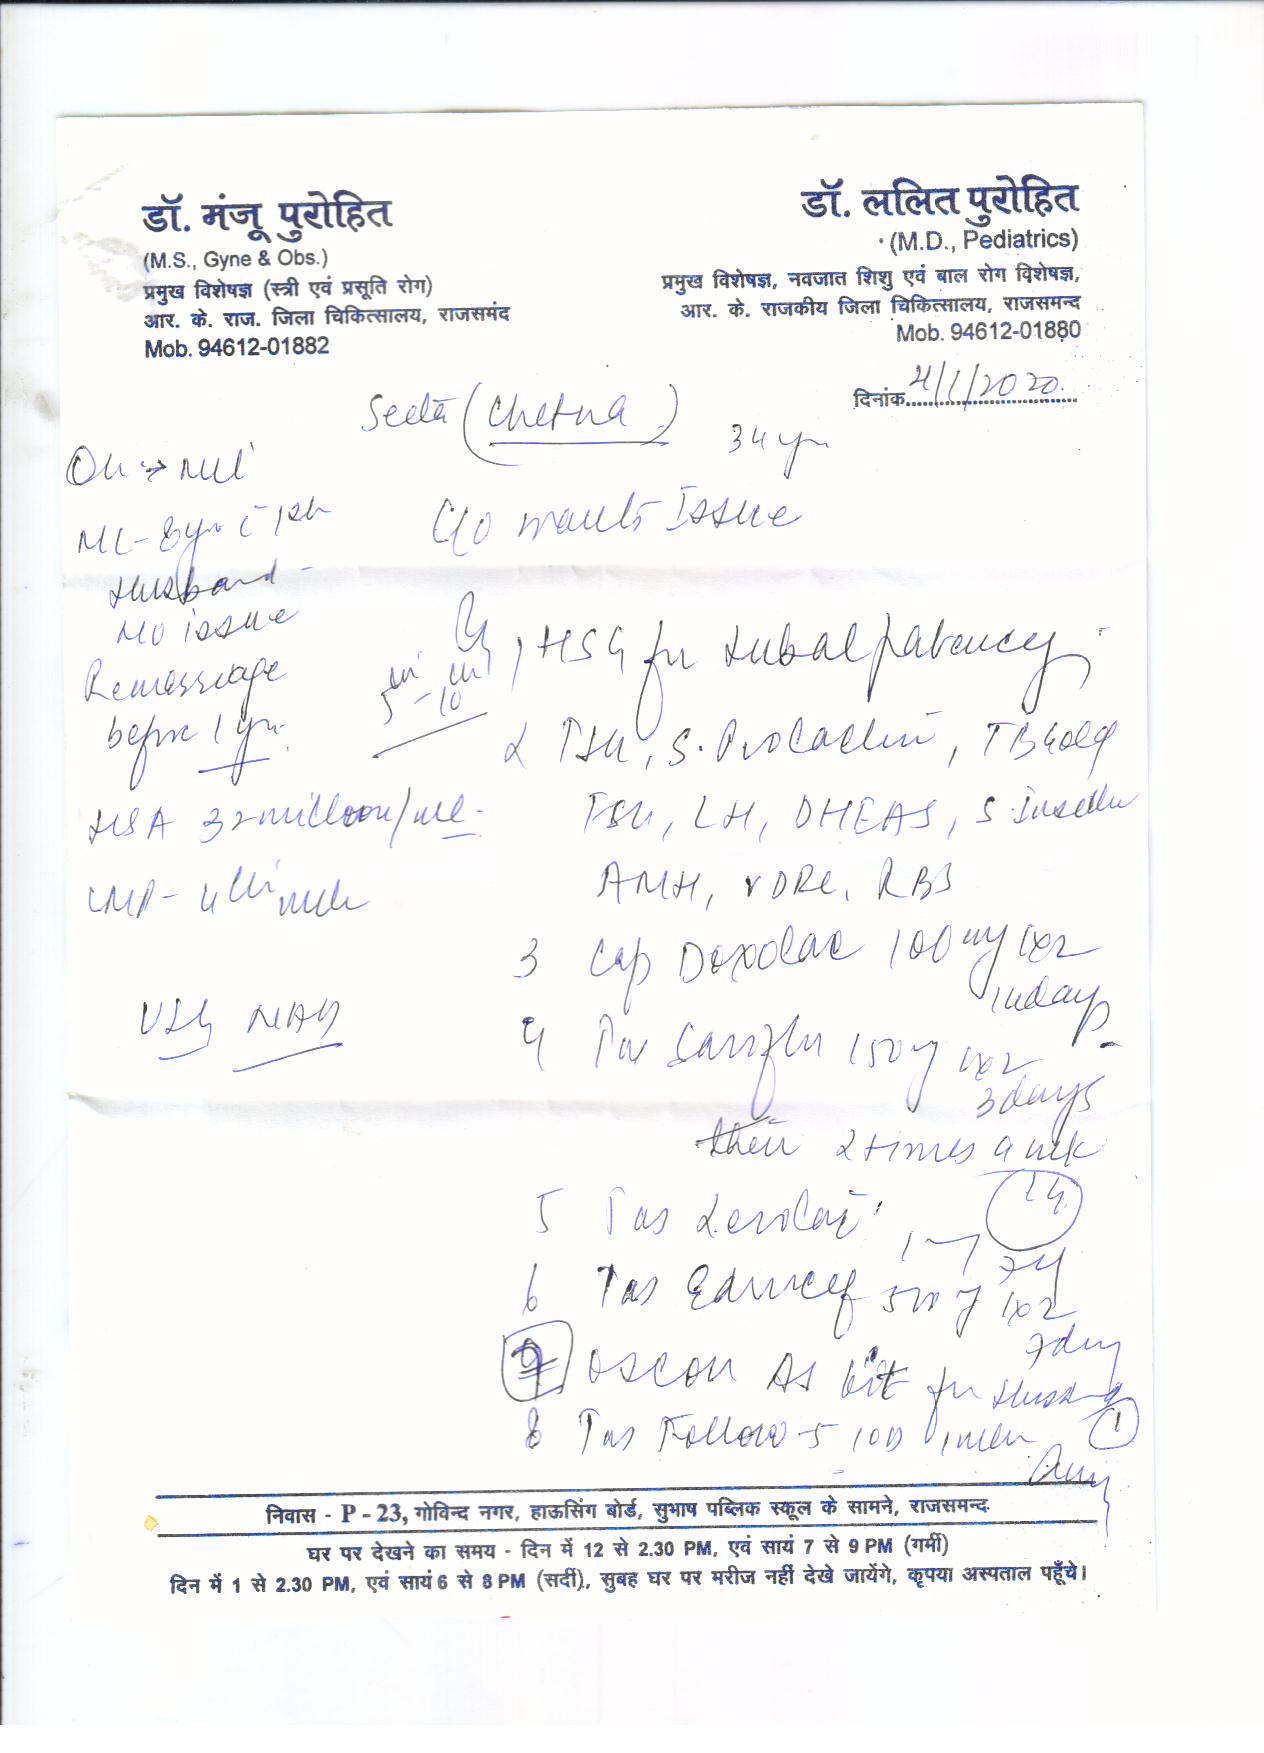 डॉ. मंजू पुरोहित
(M.S., Gyne & Obs.)
प्रमुख विशेषज्ञ (स्त्री एवं प्रसूति रोग)
आर. के. राज. जिला चिकित्सालय, राजसमंद
Mob. 94612-01882
डॉ. ललित पुरोहित
(M.D., Pediatrics)
प्रमुख विशेषज्ञ, नवजात शिशु एवं बाल रोग विशेषज्ञ,
आर. के. राजकीय जिला चिकित्सालय, राजसमन्द
Mob. 94612-01880
दिनांक 4/1/2020
Seeta (Chetna)
34 yr
C/O wants Issue
Husband
No issue
Remarriage
before 1 yr.
HSA 32 million/ml
LMP-
USG NAD
5 - 10
1 HSG for tubal patency
2 TSH, S. Prolactin, TB Gold
FSH, LH, DHEAS, S. Insulin
AMH, VDRL, RBS
3 Cap 100 mg 1x2
days
4 150 1x2
3 days
then 2 times a wk
5 Tas
6 Tas 500 1x2
7 day
AS kit for Husband
8 Tas
निवास - P - 23, गोविन्द नगर, हाऊसिंग बोर्ड, सुभाष पब्लिक स्कूल के सामने, राजसमन्द
घर पर देखने का समय - दिन में 12 से 2.30 PM, एवं सायं 7 से 9 PM (गर्मी)
दिन में 1 से 2.30 PM, एवं सायं 6 से 8 PM (सर्दी), सुबह घर पर मरीज नहीं देखे जायेंगे, कृपया अस्पताल पहुँचे।